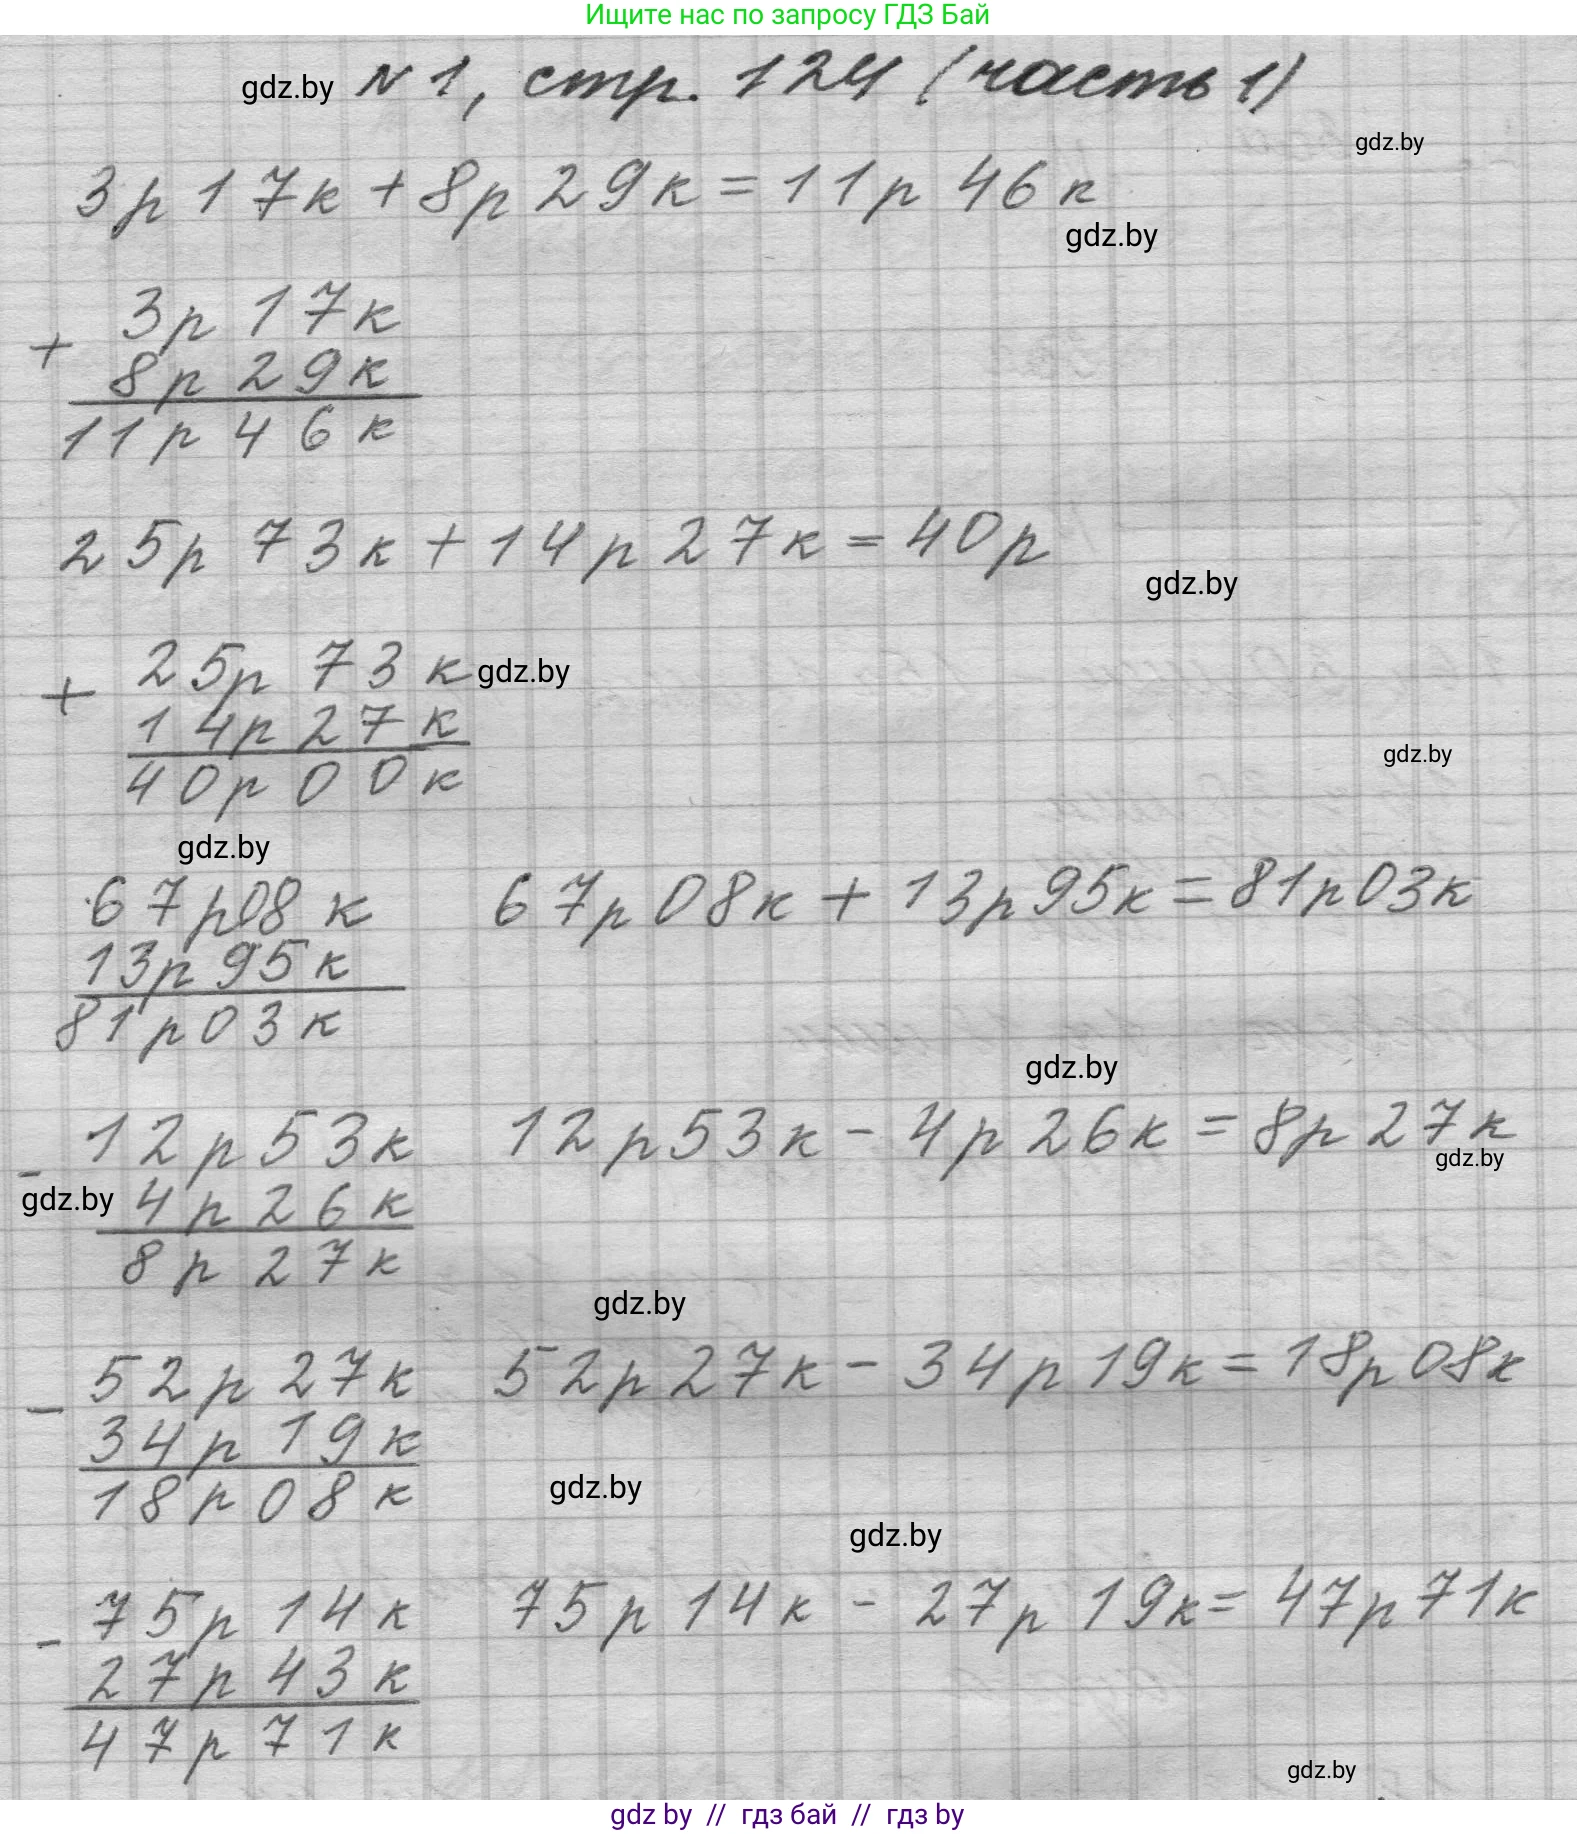 Ищите нас по запросу ГДЗ Бай
gdz.by N 1, стр. 124 (часть 1)
gdz.by
3р 17к + 8р 29к = 11р 46к
gdz.by
+ 3р 17к
8р 29к
11р 46к
25р 73к + 14р 27к = 40р
gdz.by
+ 25р 73к gdz.by
14р 27к
40р 00к
gdz.by
gdz.by
67р08к 67р 08к + 13р95к = 81р03к
13р 95к
81р03к
gdz.by
- 12р 53к 12р53к - 4р 26к = 8р 27к
gdz.by
gdz.by 4р 26к
8р 27к
gdz.by
- 52р 27к 52р27к - 34р19к = 18р08к
34р 19к
18р 08к
gdz.by
gdz.by
- 75р 14к 75р 14к - 27р 19к = 47р71к
27р 43к
47р 71к
gdz.by
gdz by // гдз бай // гдз by